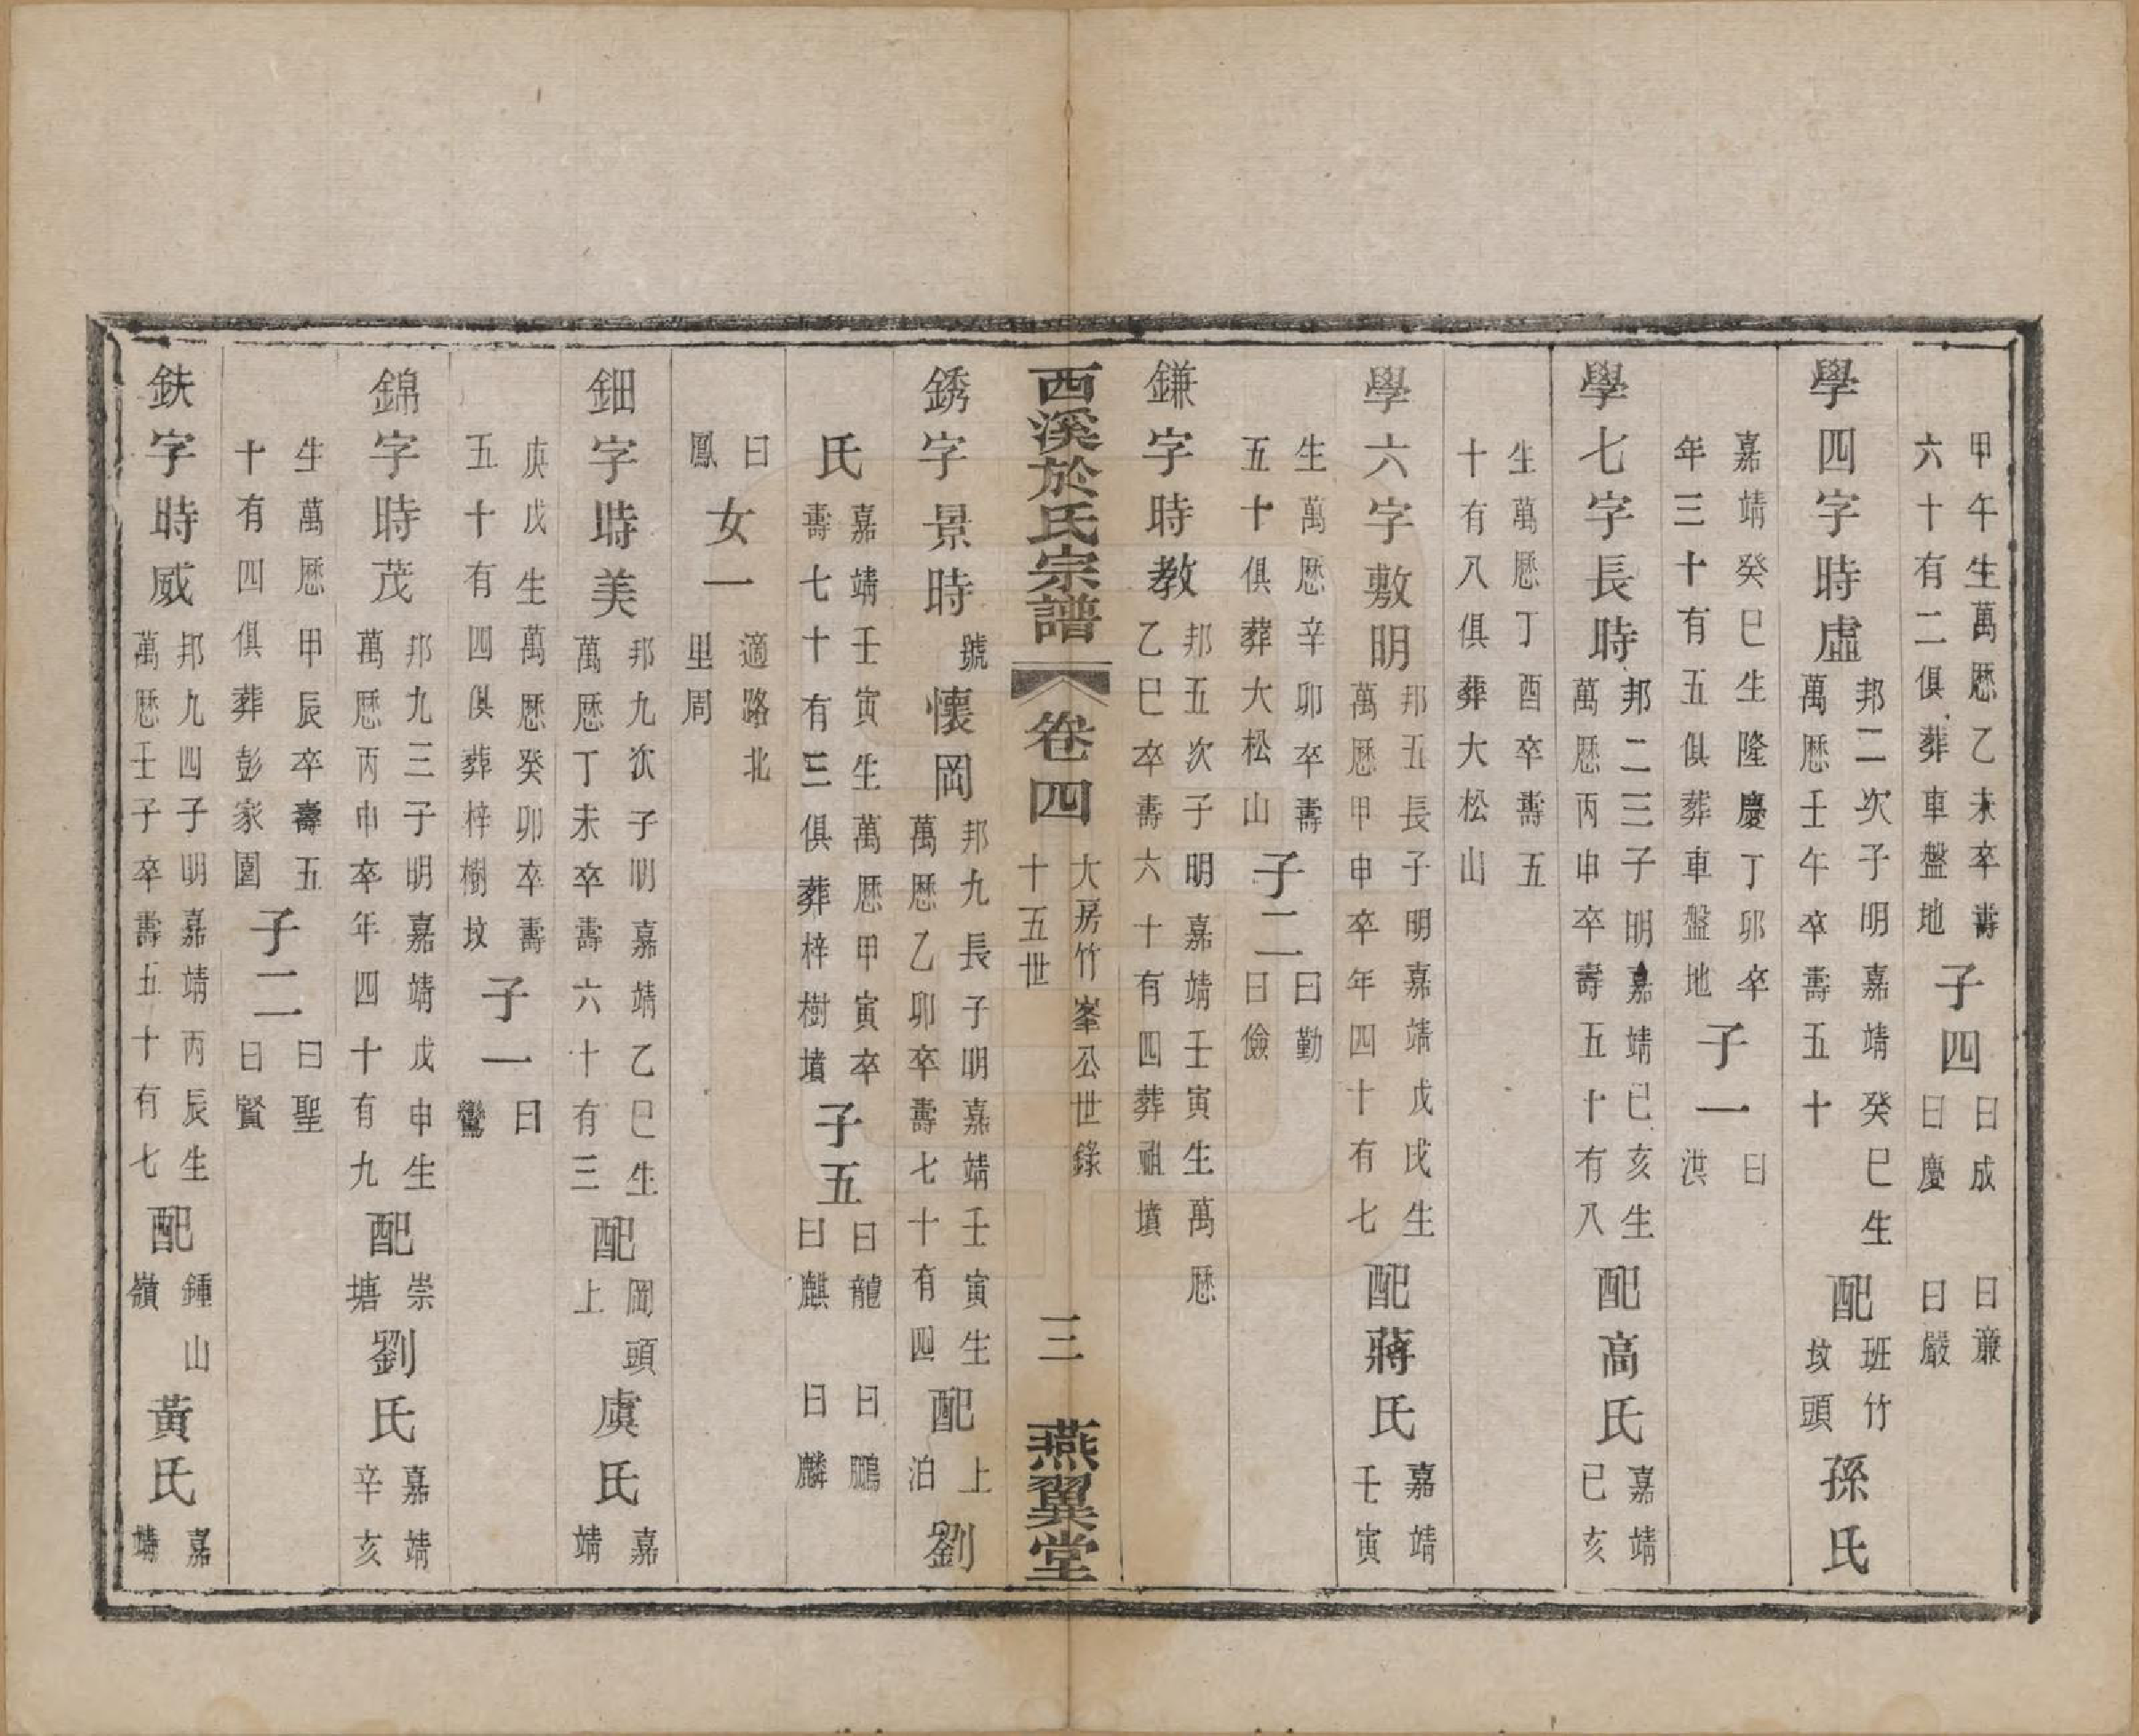 甲午生萬厯乙未卒壽六十有二俱葬車盤地子四曰成曰慶曰亷曰嚴
學四字時虛邦二次子明嘉靖癸巳生萬厯壬午卒壽五十配班竹坟頭孫氏
嘉靖癸巳生隆慶丁卯卒年三十有五俱葬車盤地子一曰洪
學七字長時邦二三子明嘉靖已亥生萬厯丙申卒壽五十有八配高氏嘉靖已亥
生萬厯丁酉卒壽五十有八俱葬大松山
學六字敷明邦五長子明嘉靖戊戌生萬厯甲申卒年四十有七配蔣氏嘉靖壬寅
生萬厯辛卯卒壽五十俱葬大松山子二曰勤曰儉
鎌字時教邦五次子明嘉靖壬寅生萬厯乙巳卒壽六十有四葬祖墳
西溪於氏宗譜卷四 大房竹峯公世錄十五世 三 燕翼堂
銹字景時號懷岡邦九長子明嘉靖壬寅生萬厯乙卯卒壽七十有四配上泊劉
氏嘉靖壬寅生萬厯甲寅卒壽七十有三俱葬梓樹墳子五曰龍曰麒曰鵬曰麟
曰鳳女一適路北里周
鈿字時美邦九次子明嘉靖乙巳生萬厯丁未卒壽六十有三配岡頭上虞氏嘉靖
庚戌生萬厯癸卯卒壽五十有四俱葬梓樹坟子一曰鸞
錦字時茂邦九三子明嘉靖戊申生萬厯丙申卒年四十有九配崇塘劉氏嘉靖辛亥
生萬厯甲辰卒壽五十有四俱葬彭家園子二曰聖曰賢
鈇字時威邦九四子明嘉靖丙辰生萬厯壬子卒壽五十有七配鍾山嶺黃氏嘉靖